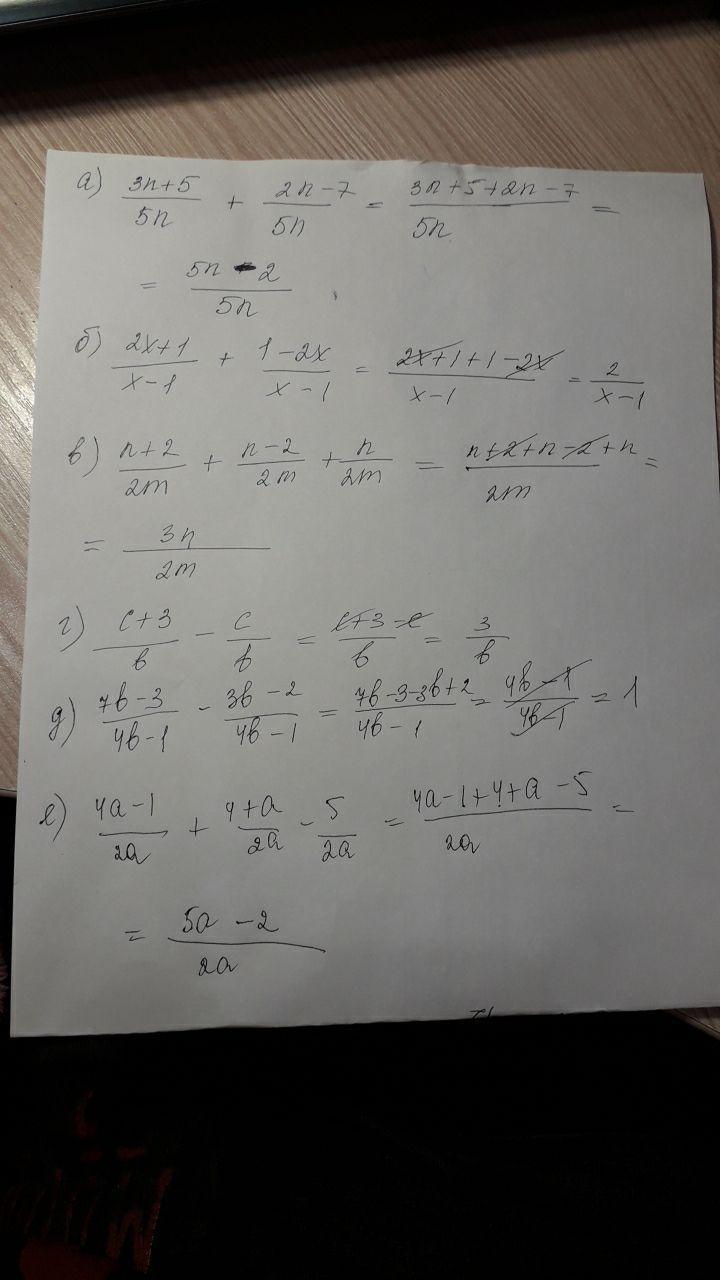 а) (3n+5)/(5n) + (2n-7)/(5n) = (3n+5+2n-7)/(5n) =
= (5n-2)/(5n)
б) (2x+1)/(x-1) + (1-2x)/(x-1) = (2x+1+1-2x)/(x-1) = 2/(x-1)
в) (n+2)/(2m) + (n-2)/(2m) + n/(2m) = (n+2+n-2+n)/(2m) =
= 3n/(2m)
г) (c+3)/b - c/b = (c+3-c)/b = 3/b
д) (7b-3)/(4b-1) - (3b-2)/(4b-1) = (7b-3-3b+2)/(4b-1) = (4b-1)/(4b-1) = 1
е) (4a-1)/(2a) + (4+a)/(2a) - 5/(2a) = (4a-1+4+a-5)/(2a) =
= (5a-2)/(2a)